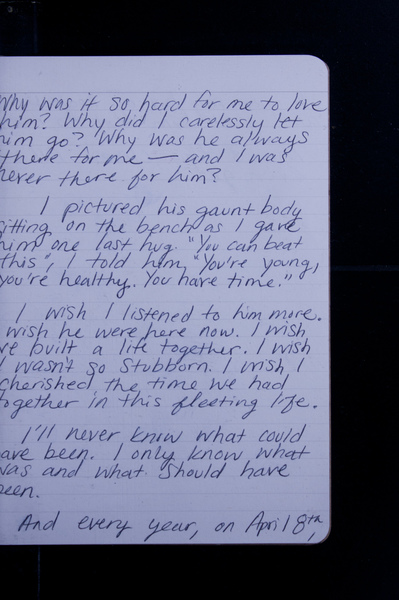 Why was it so hard for me to love
him? Why did I carelessly let
him go? Why was he always
there for me — and I was
never there for him?
I pictured his gaunt body
sitting on the bench as I gave
him one last hug. "You can beat
this", I told him, "You're young,
you're healthy. You have time."
I wish I listened to him more.
wish he were here now. I wish
we built a life together. I wish
I wasn't so stubborn. I wish I
cherished the time we had
together in this fleeting life.
I'll never know what could
have been. I only know what
was and what should have
been.
And every year, on April 8th,